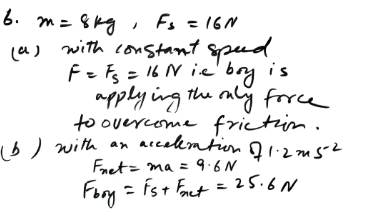 6. m = 8kg , Fs = 16N
(a) with constant speed
F = Fs = 16 N i.e boy is
applying the only force
to overcome friction.
(b) with an acceleration of 1.2 ms-2
Fnet = ma = 9.6N
Fboy = Fs + Fnet = 25.6 N